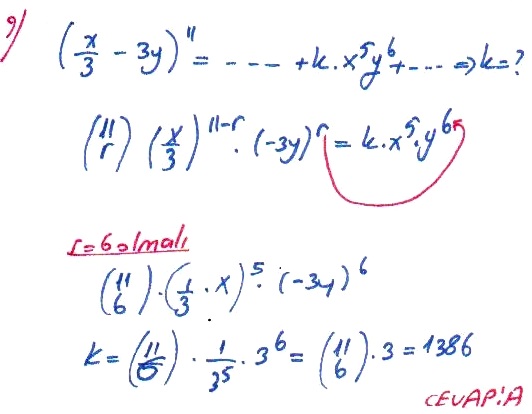 9) (x/3 - 3y)^11 = ---- + k.x^5y^6 + ---- ⇒ k=?
(11 r) (x/3)^11-r . (-3y)^r = k.x^5.y^6
r=6 olmalı
(11 6) . (1/3 . x)^5 . (-3y)^6
k = (11 6) . 1/3^5 . 3^6 = (11 6) . 3 = 1386
CEVAP:A